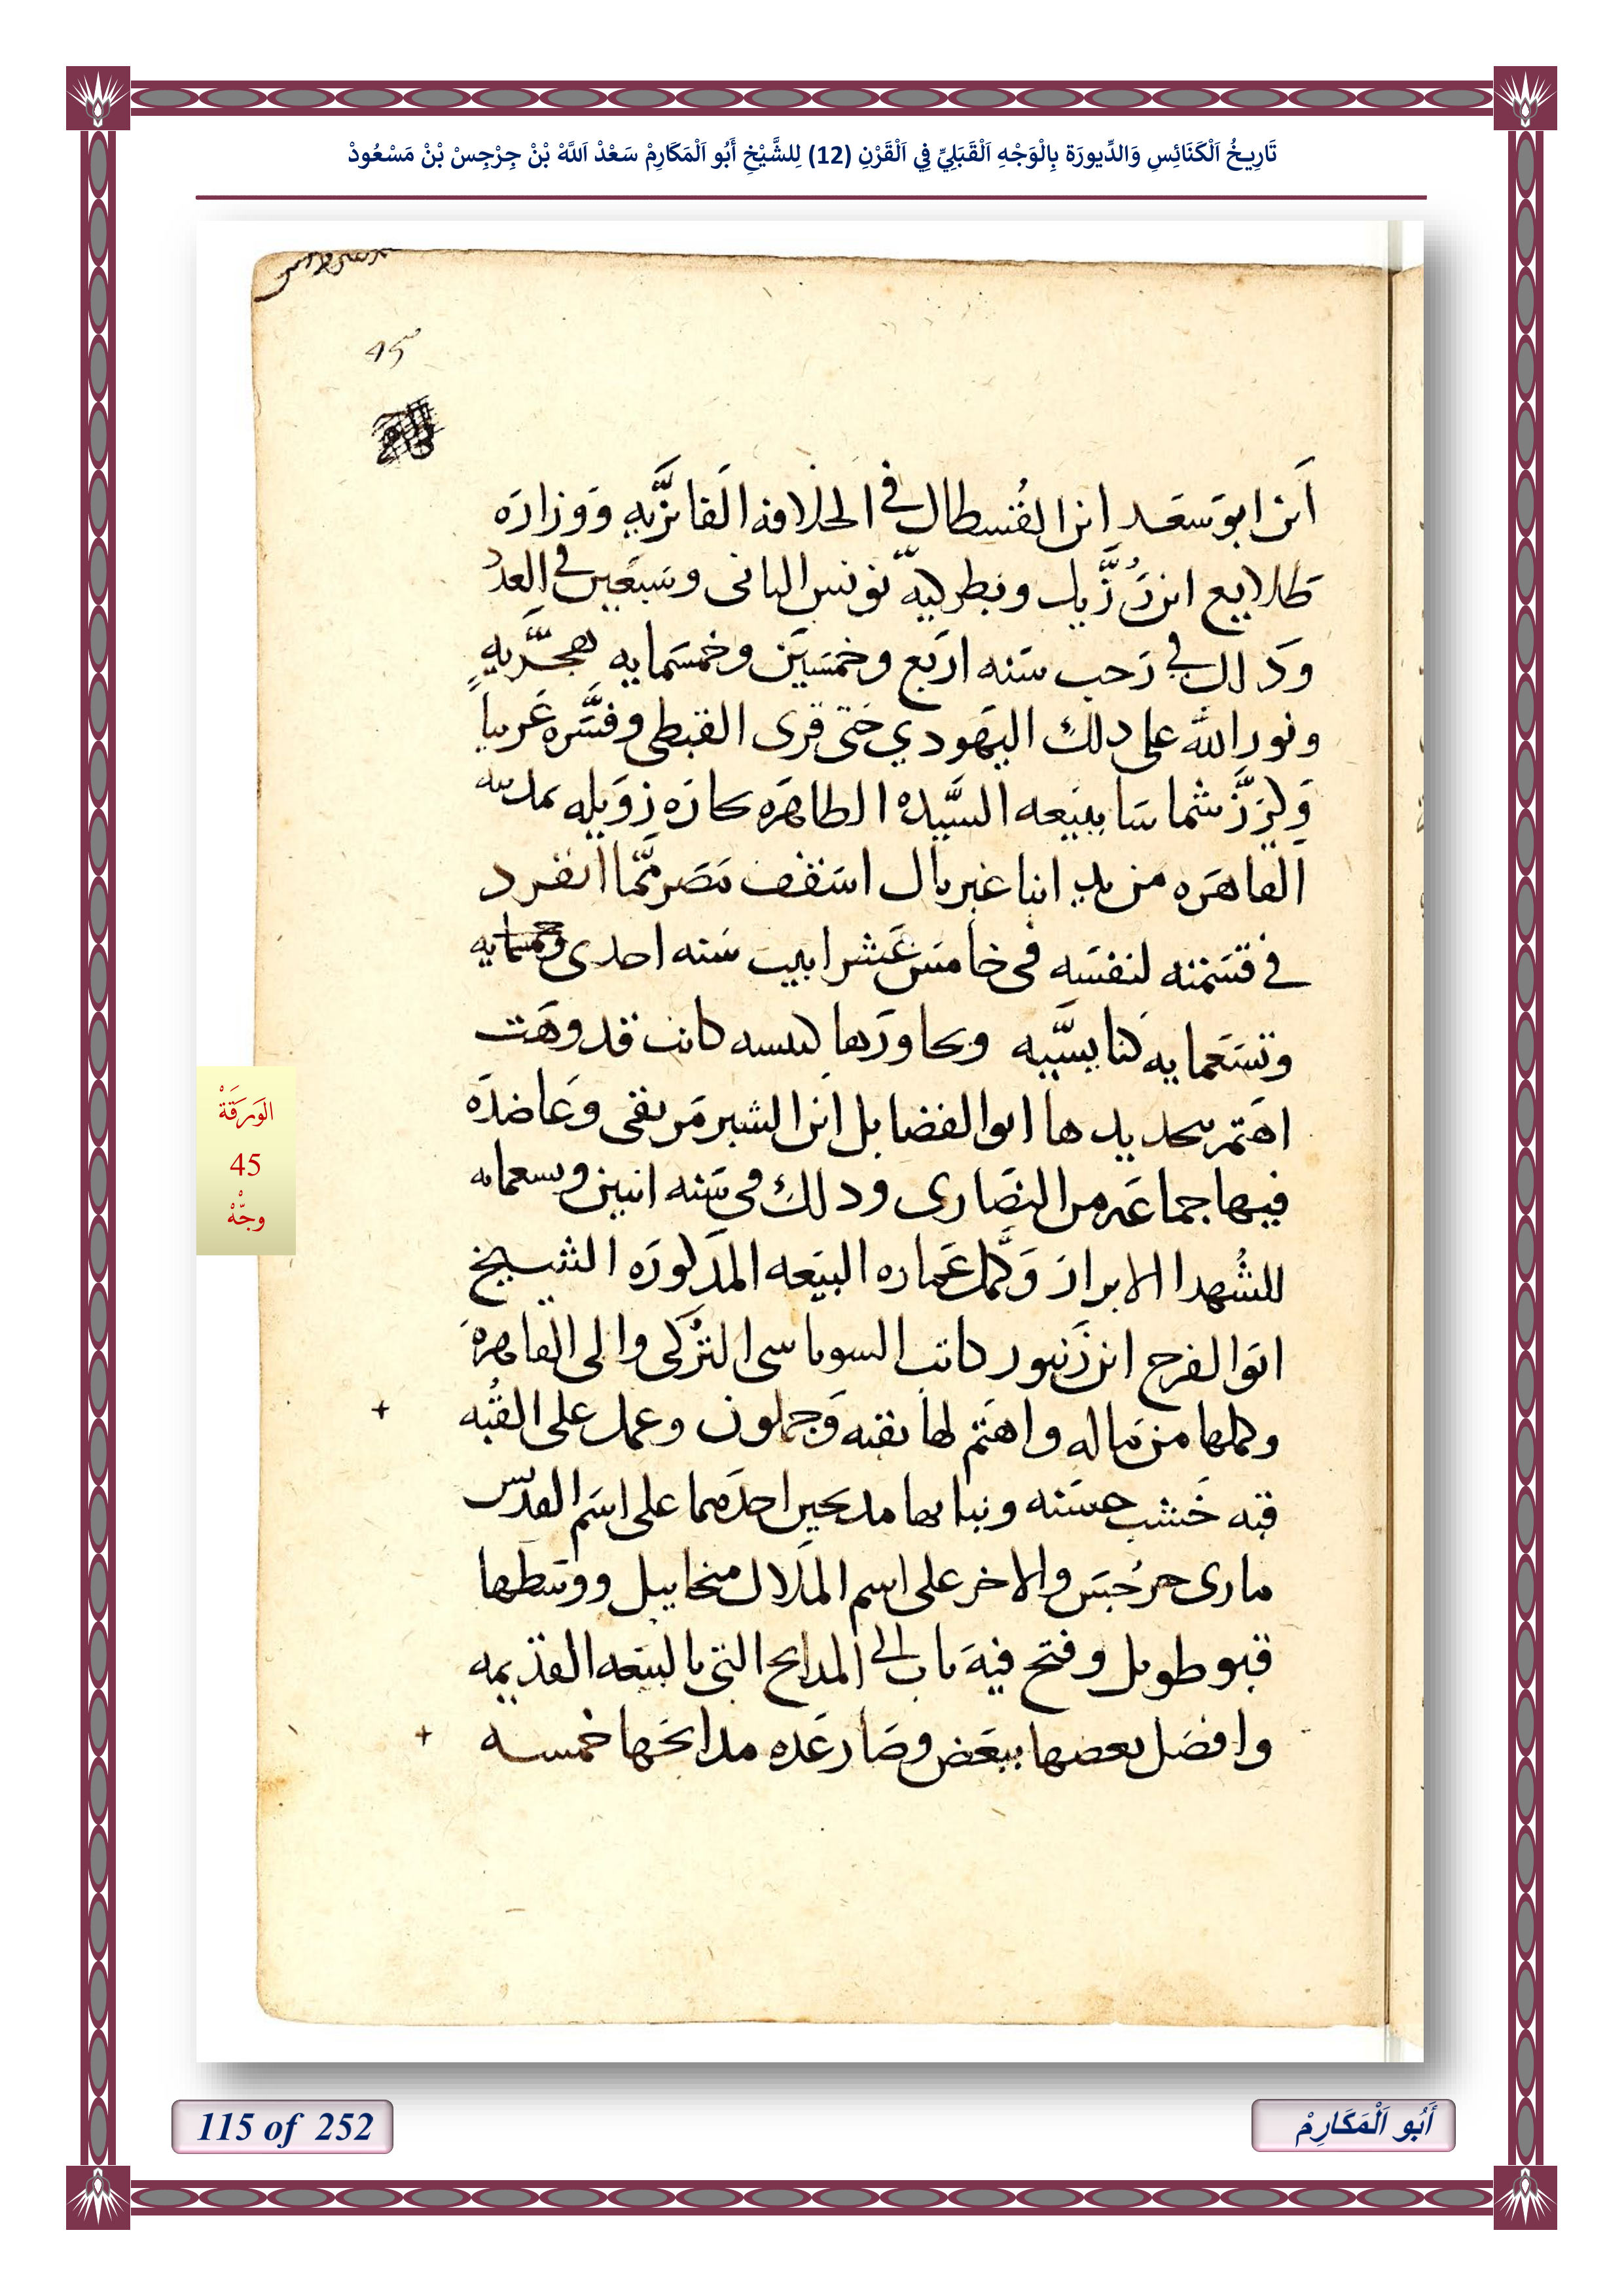 تَارِيخُ اَلْكَنَائِسِ وَالدِّيورَة بِالْوَجْهِ اَلْقَبَلِيِّ فِي اَلْقَرْنِ (12) لِلشَّيْخِ أَبُو اَلْمَكَارِمْ سَعْدْ اَللَّهْ بْنْ جِرْجِسْ بْنْ مَسْعُودْ
45
ابن ابو سعد ابن القسطال في الخلافه الفايزيه ووزاره
طلايع ابن رزيك وبطركيه يونس الثانى وسبعين في العدد
وذلك في رجب سنه اربع وخمسين وخمسمايه هجريه
ونور الله على ذلك اليهودي حتى قرى القبطى وفسره عربيا
وكرز شماسا ببيعه السيده الطاهره بحاره زويله بمدينه
القاهره من يد انبا غبريال اسقف مصر مما انفرد
في قسمته لنفسه فى خامس عشر ابيب سنه احدى
وتسعمايه كنايسيه وبجاورها كنيسه كانت قد وهت
اهتم بتجديدها ابو الفضايل ابن الشبرمريقى وعاضده
فيها جماعه من النصارى وذلك فى سنه اثنين وتسعمايه
للشهدا الابرار وكمل عماره البيعه المذكوره الشيخ
ابو الفرج ابن زنبور كاتب السوباسى التركى والى القاهره
وكملها من ماله واهتم لها بقبه وجملون وعمل على القبه
قبه خشب حسنه وبنا بها مدبحين احدهما على اسم القديس
مارى جرجس والاخر على اسم الملاك ميخاييل ووسطها
قبو طويل وفتح فيه باب الى المدابح التى بالبيعه القديمه
وافصل بعضها ببعض وصار عده مدابحها خمسه
الوَرَقَةْ
45
وجْهْ
115 of 252
أَبُو اَلْمَكَارِمْ